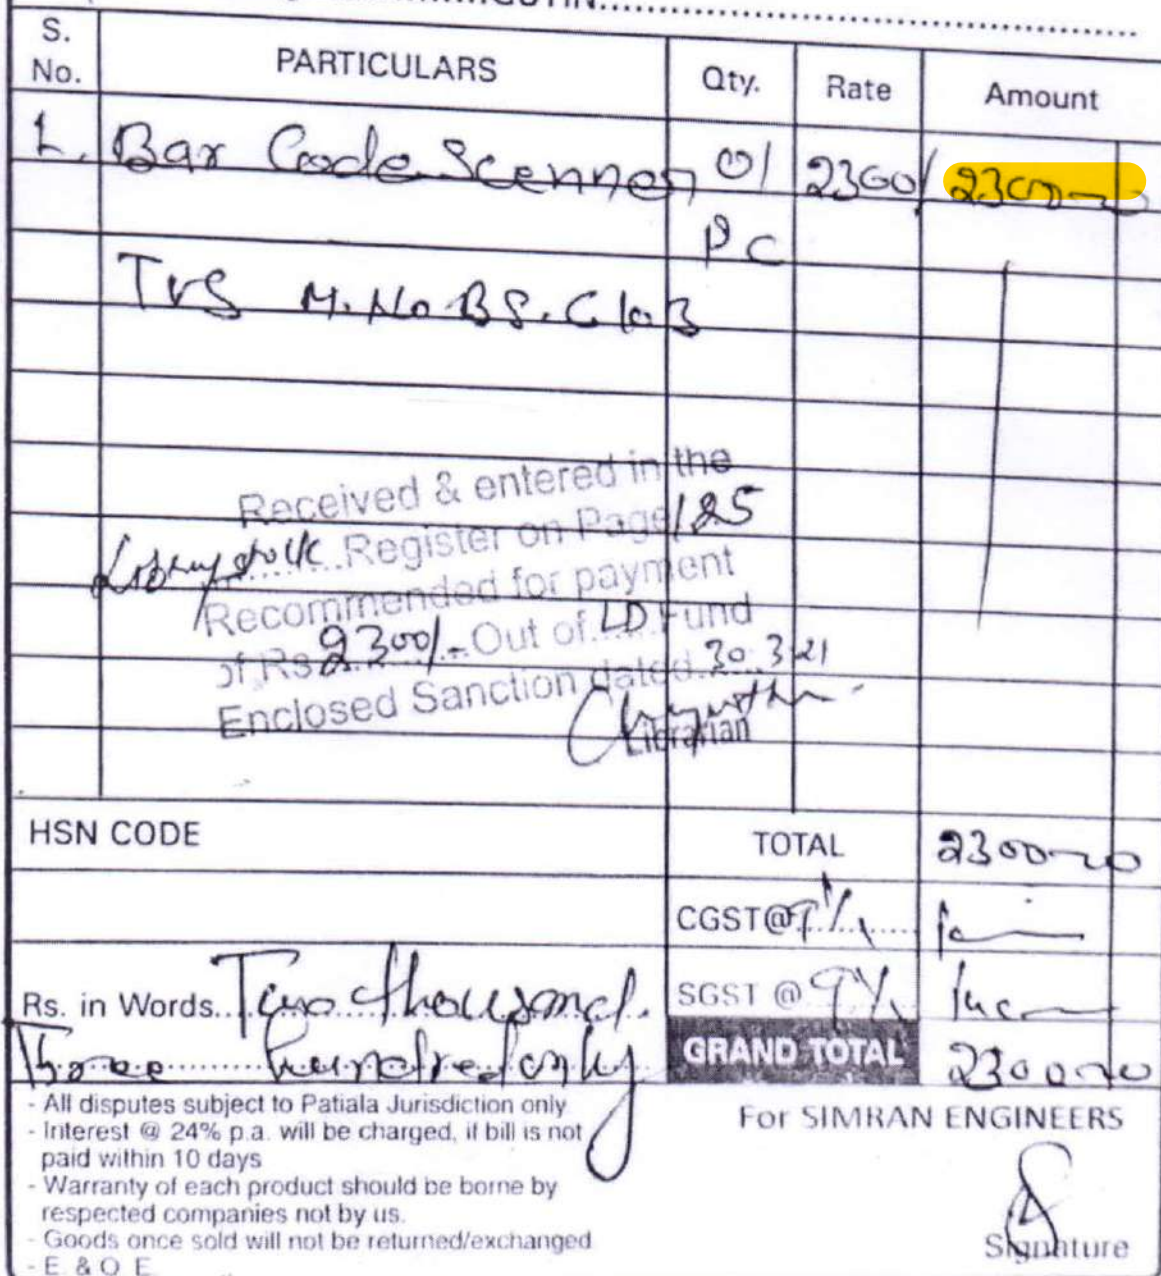 GSTIN
S. No. PARTICULARS Qty. Rate Amount
1. Bar Code Scenner 01 2300/ 2300-00
PC
TVS M.No BS. C 103
Received & entered in the
Library stock Register on Page 125
Recommended for payment
of Rs 2300/- Out of LD Fund
Enclosed Sanction dated 30.3.21
Librarian
HSN CODE TOTAL 2300-00
CGST@ 9%
Rs. in Words Two thousand SGST @ 9%
Three hundred only GRAND TOTAL 2300-00
- All disputes subject to Patiala Jurisdiction only
- Interest @ 24% p.a. will be charged, if bill is not
paid within 10 days
- Warranty of each product should be borne by
respected companies not by us.
- Goods once sold will not be returned/exchanged
- E. & O. E.
For SIMRAN ENGINEERS
Signature